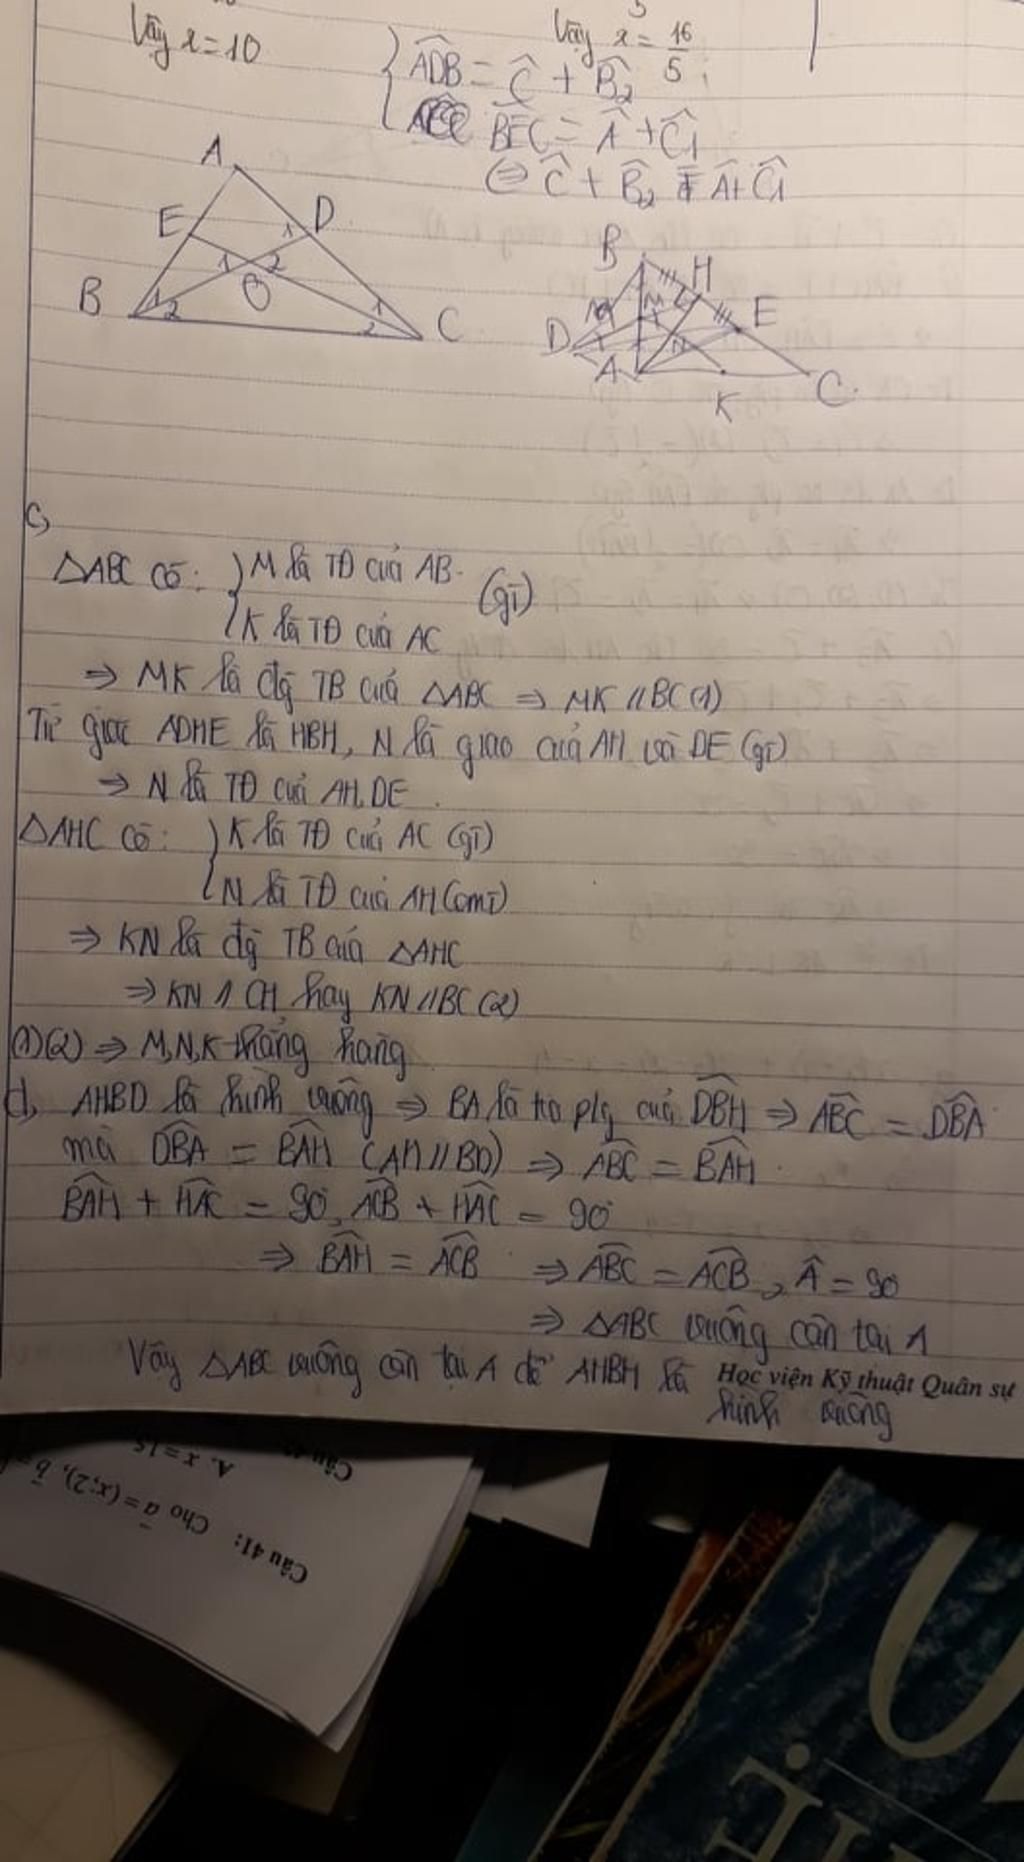 Vậy x = 10
Vậy x = 16/5
{ ADB = C + B2
BEC = A + C1
⇔ C + B2 = A + C1
A
E
D
1
1
2
O
B
1
2
1
2
C
B
H
M
E
D
N
A
K
C
c,
△ABC có: { M là TĐ của AB (gt)
K là TĐ của AC
⇒ MK là đg TB của △ABC ⇒ MK // BC (1)
Tứ giác ADHE là HBH, N là giao của AH và DE (gt)
⇒ N là TĐ của AH, DE
△AHC có: { K là TĐ của AC (gt)
N là TĐ của AH (cmt)
⇒ KN là đg TB của △AHC
⇒ KN // CH hay KN // BC (2)
(1)(2) ⇒ M, N, K thẳng hàng
d, AHBD là hình vuông ⇒ BA là tia plg của DBH ⇒ ABC = DBA
mà DBA = BAH (AH // BD) ⇒ ABC = BAH
BAH + HAC = 90°, ACB + HAC = 90°
⇒ BAH = ACB ⇒ ABC = ACB, A = 90
⇒ △ABC vuông cân tại A
Vậy △ABC vuông cân tại A để AHBH là
Học viện Kỹ thuật Quân sự
hình vuông
A. x = 15
Câu 41: Cho a = (x;2), b =